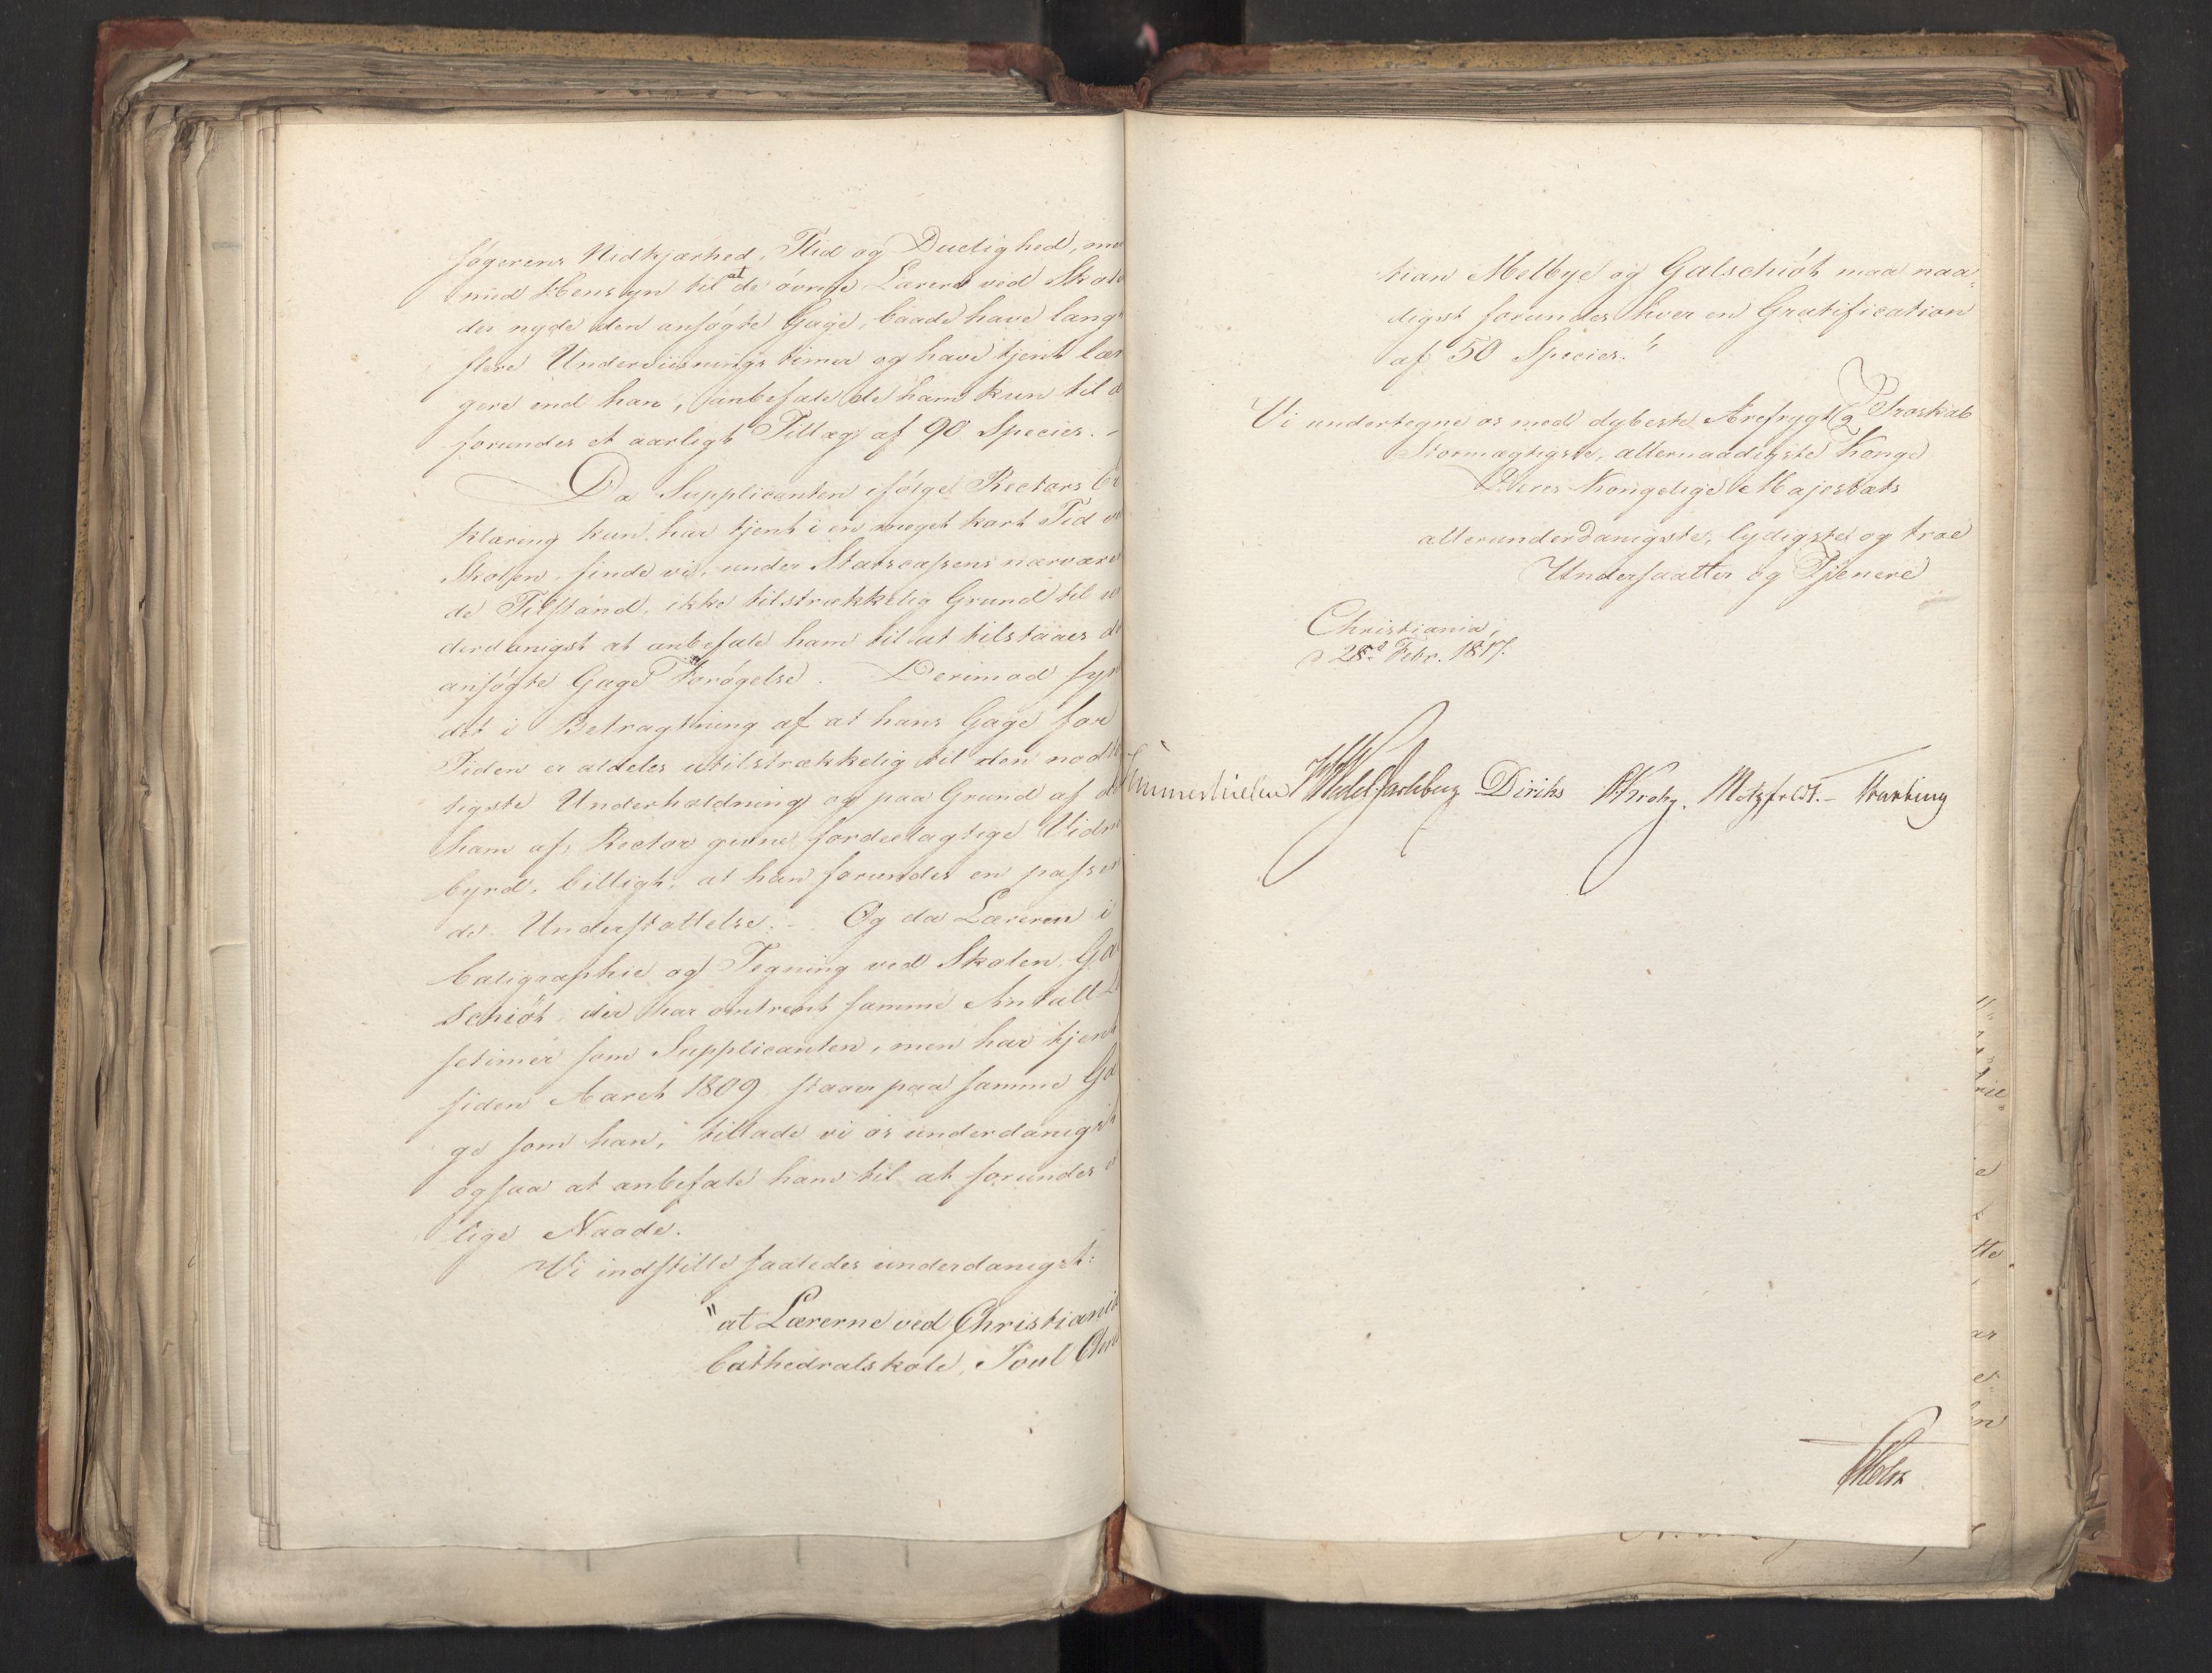 søgerens Nidkjærhed, Flid og Duelighed, me
med Hensyn til at de øvrige Lærere ved Skole
der nyde den ansøgte Gage, baade have langt
flere Underviisnings timer og have tjent læn
gere end han, anbefale de ham kun til a
forundes et aarligt Tillæg af 90 Species. -
Da Supplicanten ifølge Rectors Er
klæring kun har tjent i en meget kort Tid v
Skolen, finde vi, under Statscassens nærværen
de Tilstand, ikke tilstrækkelig Grund til u
derdanigst at anbefale ham til at tilstaaes de
ansøgte Gage Forøgelse. Derimod syn
det i Betragtning af at hans Gage for
Tiden er aldeles utilstrækkelig til den nødtø
tigste Underholdning og paa Grund af de
ham af Rector givne fordeelagtige Vidne
byrd, billigt, at han forundes en passen
de Understøttelse. - Og da Læreren i
Caligraphie og Tegning ved Skolen Gal
schiøt, der har omtrent samme Antall Læ
setimer som Supplicanten, men har tjent
siden Aaret 1809 staaer paa samme Ga
ge som han, tillade vi os underdanigst
ogsaa at anbefale ham til at forundes
lige Naade.
Vi indstille saaledes underdanigst:
"at Lærerne ved Christiania
Cathedralskole, Poul Chri
tian Melbye og Galschiøt maa naa„
digst forundes hver en Gratification
af 50 Species."
Vi undertegne os med dybeste Ærefrygt og Troskab
Stormægtigste, allernaadigste Konge
Deres Kongelige Majestæts
allerunderdanigste, lydigste og troe
Undersaatter og Tjenere
Christiania,
d 28d Febr. 1817.
Sommerhielm HWedel Jarlsberg Diriks CKrohg. Motzfeldt. - Vartung
Holst